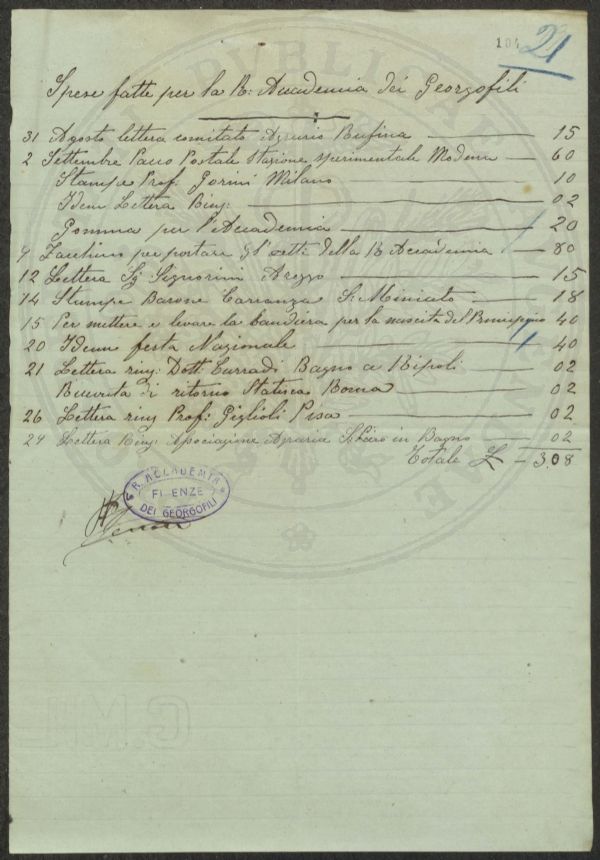 104 21
Spese fatte per la R: Accademia dei Georgofili
31 Agosto lettera comitato Agrario Rufina 15
2 Settembre Pacco Postale Stazione sperimentale Modena 60
Stampe Prof: Gorini Milano 10
Idem Lettera Ring: 02
Gomma per l'Accademia 20
9 Facchino per portare gl' della R Accademia 80
12 Lettera Sig Signorini Arezzo 15
14 Stampe Barone Carranza S. Miniato 18
15 Per mettere e levare la bandiera per la nascita del 40
20 Idem festa Nazionale 40
21 Lettera ring: Dott: Curradi Bagno a Ripoli 02
di ritorno Roma 02
26 Lettera ring Prof: Giglioli Pisa 02
29 Lettera Ring: Associazione Agraria in Bagno 02
Totale £ 3,08
R. ACCADEMIA
FIRENZE
DEI GEORGOFILI